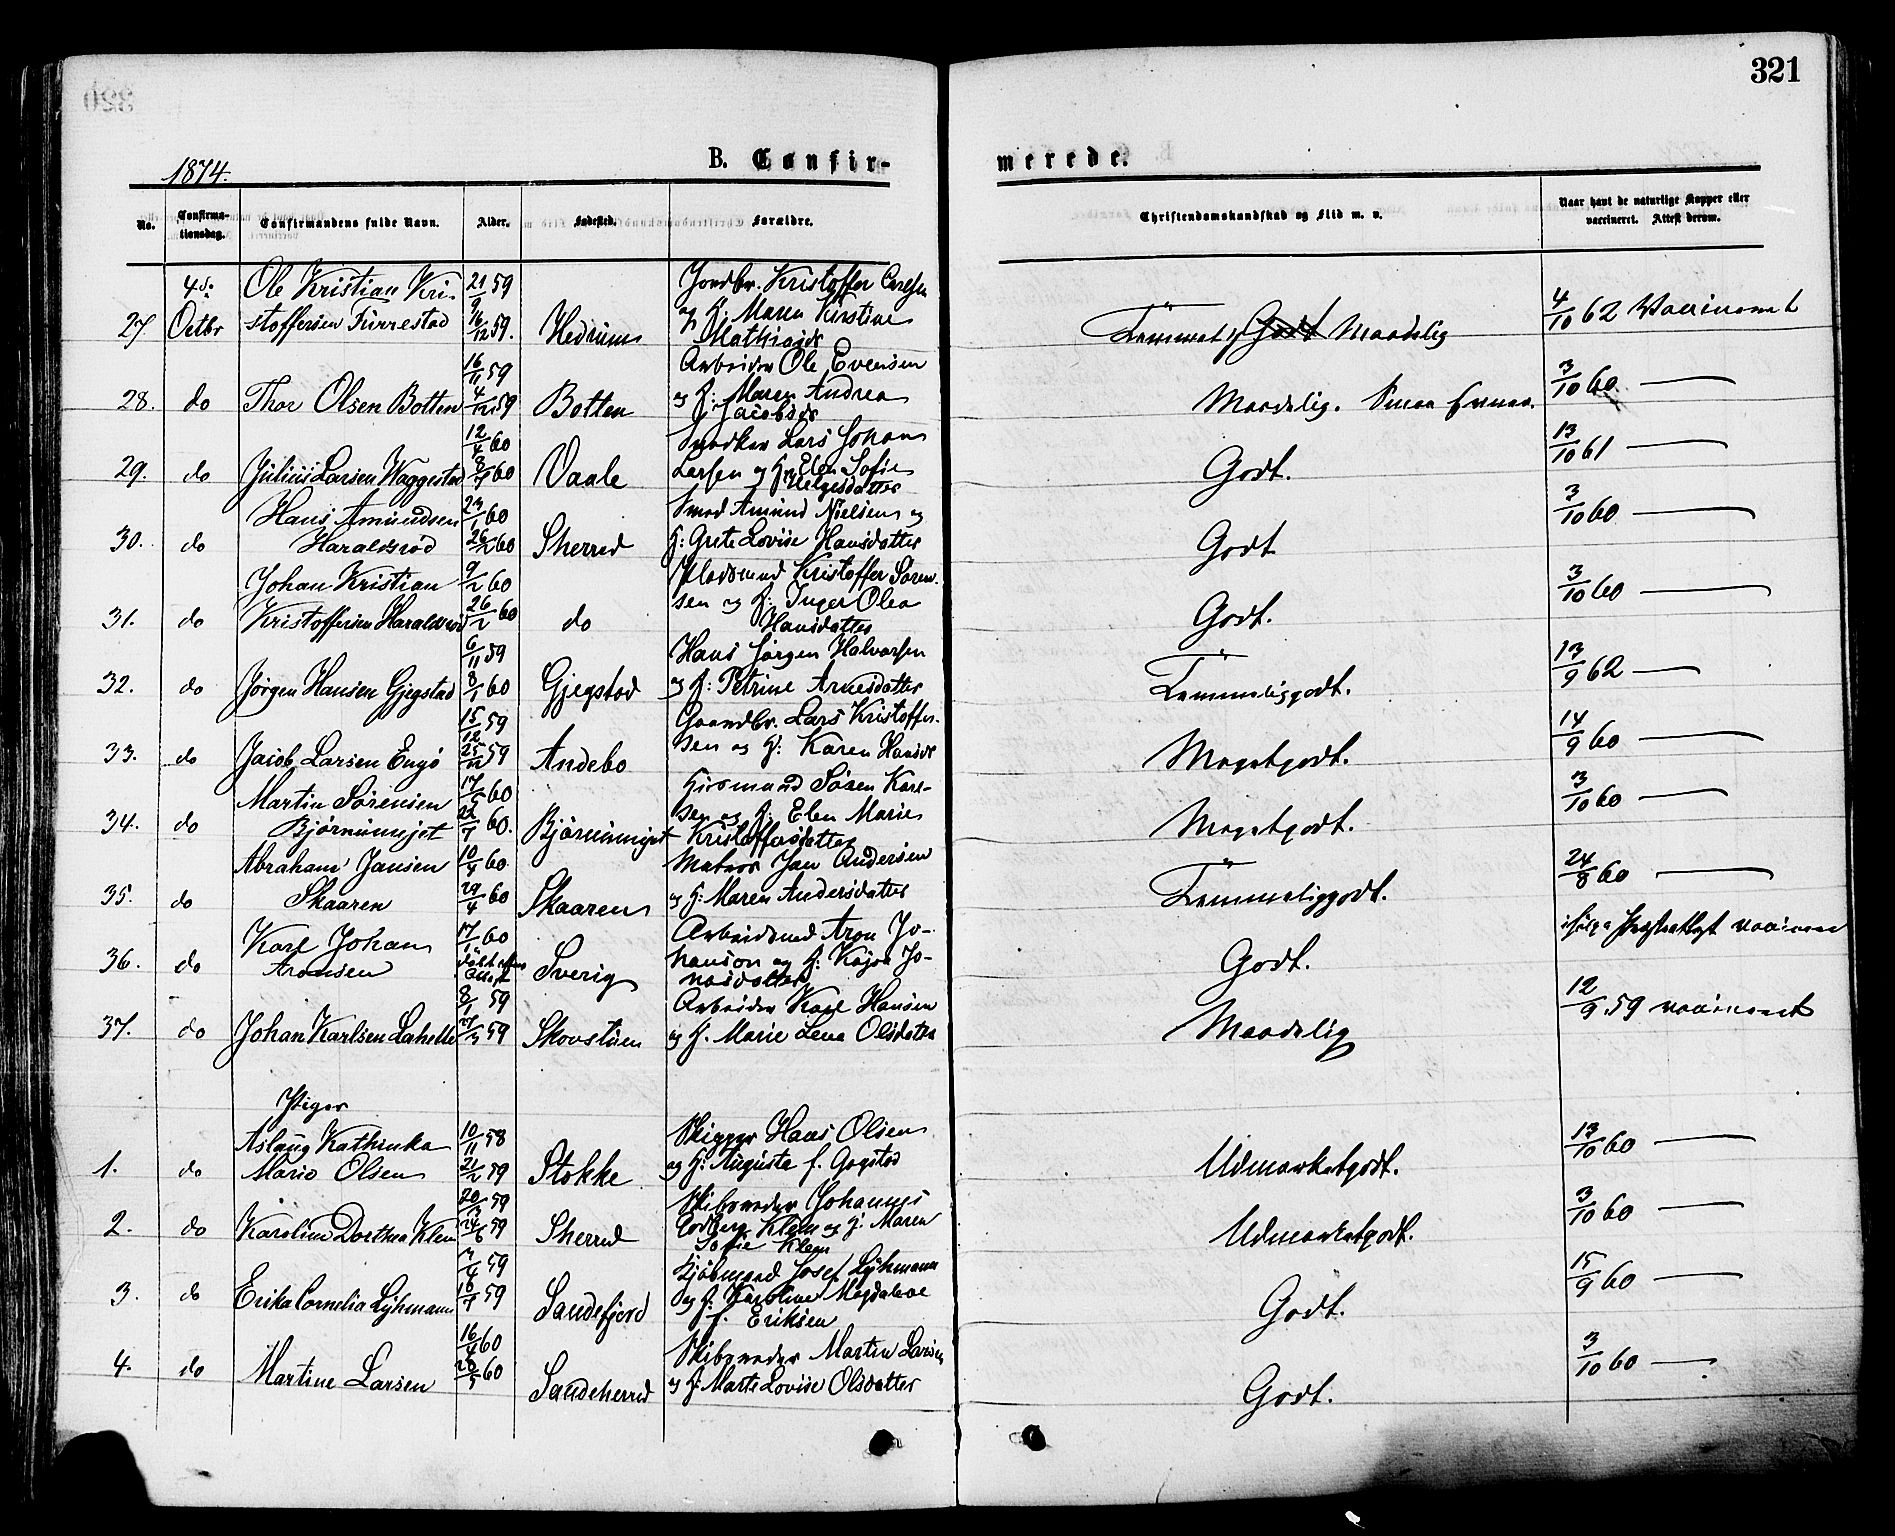 321
1874.
B. Confir-
merede.
No.
Confirma-
tionsdag.
Confirmandens fulde Navn.
Alder.
Fødested.
Forældre.
Christendomskundskab og Flid m. v.
Naar havt de naturlige Kopper eller
vaccineret. Attest derom.
27. 4de Octbr Ole Kristian Kri-
stoffersen Furrestad
21/9 59
16/12 59.
Hedrum
Jordbr. Kristoffer Carlsen
og H: Maren Kirstine
Mathiasdr
Temmel. Godt Maadelig
4/10 62 Vaccineret
28. do Thor Olsen Botten
16/11 59
4/12 59
Botten
Arbeider Ole Evensen
og H: Maren Andrea
Jacobsdr
Maadelig. Smaa Evner.
3/10 60 —
29. do Julius Larsen Waggestad
12/4 60
8/7 60
Vaale
Snedker Lars Johan
Larsen og H: Elen Sofie
Helgesdatter
Godt.
13/10 61 —
30. do Hans Amundsen
Haraldsrød
23/1 60
26/2 60
Sherred
Smed Amund Nielsen og
H: Grete Lovise Hansdatter
Godt
3/10 60 —
31. do Johan Kristian
Kristoffersen Haraldsrød
9/2 60
26/2 60
do
Pladsmand Kristoffer Søren-
sen og H: Inger Olea
Hansdatter
Godt.
3/10 60 —
32. do Jørgen Hansen Gjegstad
6/11 59
8/1 60
Gjegstad
Hans Jørgen Halvorsen
og H: Petrine Arnesdatter
Temmeliggodt.
13/9 62 —
33. do Jacob Larsen Engø
15/12 59
25/12 59
Andebo
Gaardbr. Lars Kristoffer-
sen og H: Karen Hansdr
Megetgodt.
14/9 60 —
34. do Martin Sørensen
Bjørnumejet
17/5 60
22/7 60.
Bjørnumejet
Huusmand Søren Karl-
sen og H: Elen Marie
Kristoffersdatter
Megetgodt.
3/10 60 —
35. do Abraham Jansen
Skaaren
10/4 60
29/4 60
Skaaren
Matros Jan Andersen
og H: Maren Andersdatter
Temmeliggodt.
24/8 60 —
36. do Karl Johan
Aronsen
17/1 60
døbt efter
Attest
Sverig
Arbeidsmd Aron Jo-
hanson og H: Kajsa Jo-
nasdatter
Godt.
ifølge Præsteattest vaccineret
37. do Johan Karlsen Lahelle
8/1 59
27/3 59
Skovstuen
Arbeider Karl Hansen
og H. Marie Lena Olsdatter
Maadelig
12/9 59 vaccineret
Piger
1. do Aslaug Kathinka
Marie Olsen
10/11 58
21/2 59
Stokke
Skipper Hans Olsen
og H: Augusta f. Gogstad
Udmærketgodt.
13/10 60 —
2. do Karoline Dorthea Klem
20/3 59
24/6 59
Sherred
Skibsreder Johannes
Godberg Klem og H: Maren
Sofie Klem
Udmærketgodt.
3/10 60 —
3. do Erika Cornelia Lyhmann
7/4 59
10/7 59
Sandefjord
Kjøbmand Josef Lyhmann
og H: Karoline Magdalene
f. Eriksen
Godt.
15/9 60 —
4. do Martine Larsen
16/4 60
20/5 60
Sandeherred
Skibsreder Martin Larsen
og H: Marte Lovise Olsdatter
Godt.
3/10 60 —